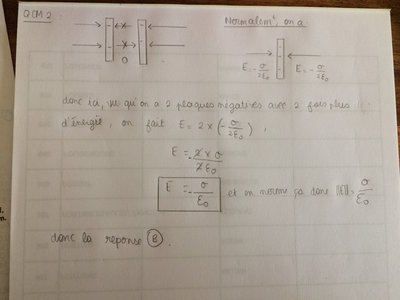 QCM 2
Normalemt, on a
0
E = - σ/2ε0 E = - σ/2ε0
donc ici, vu qu'on a 2 plaques négatives avec 2 fois plus
d'énergie, on fait E = 2 x (- σ/2ε0),
E = - 2 x σ/2ε0
E = - σ/ε0 et en norme ça donc ||E|| = σ/ε0
donc la réponse B.